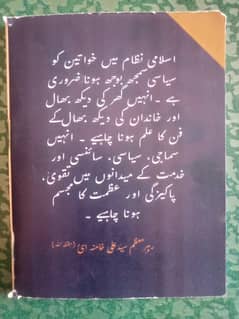 اسلامی نظام میں خواتین کو
سیاسی سمجھ بوجھ ہونا ضروری
ہے ۔ انہیں گھر کی دیکھ بھال
اور خاندان کی دیکھ بھال کے
فن کا علم ہونا چاہیے ۔ انہیں
سماجی، سیاسی، سائنسی اور
خدمت کے میدانوں میں تقویٰ،
پاکیزگی اور عظمت کا مجسم
ہونا چاہیے ۔
رہبر معظم سید علی خامنہ ای (حفظہ اللہ)